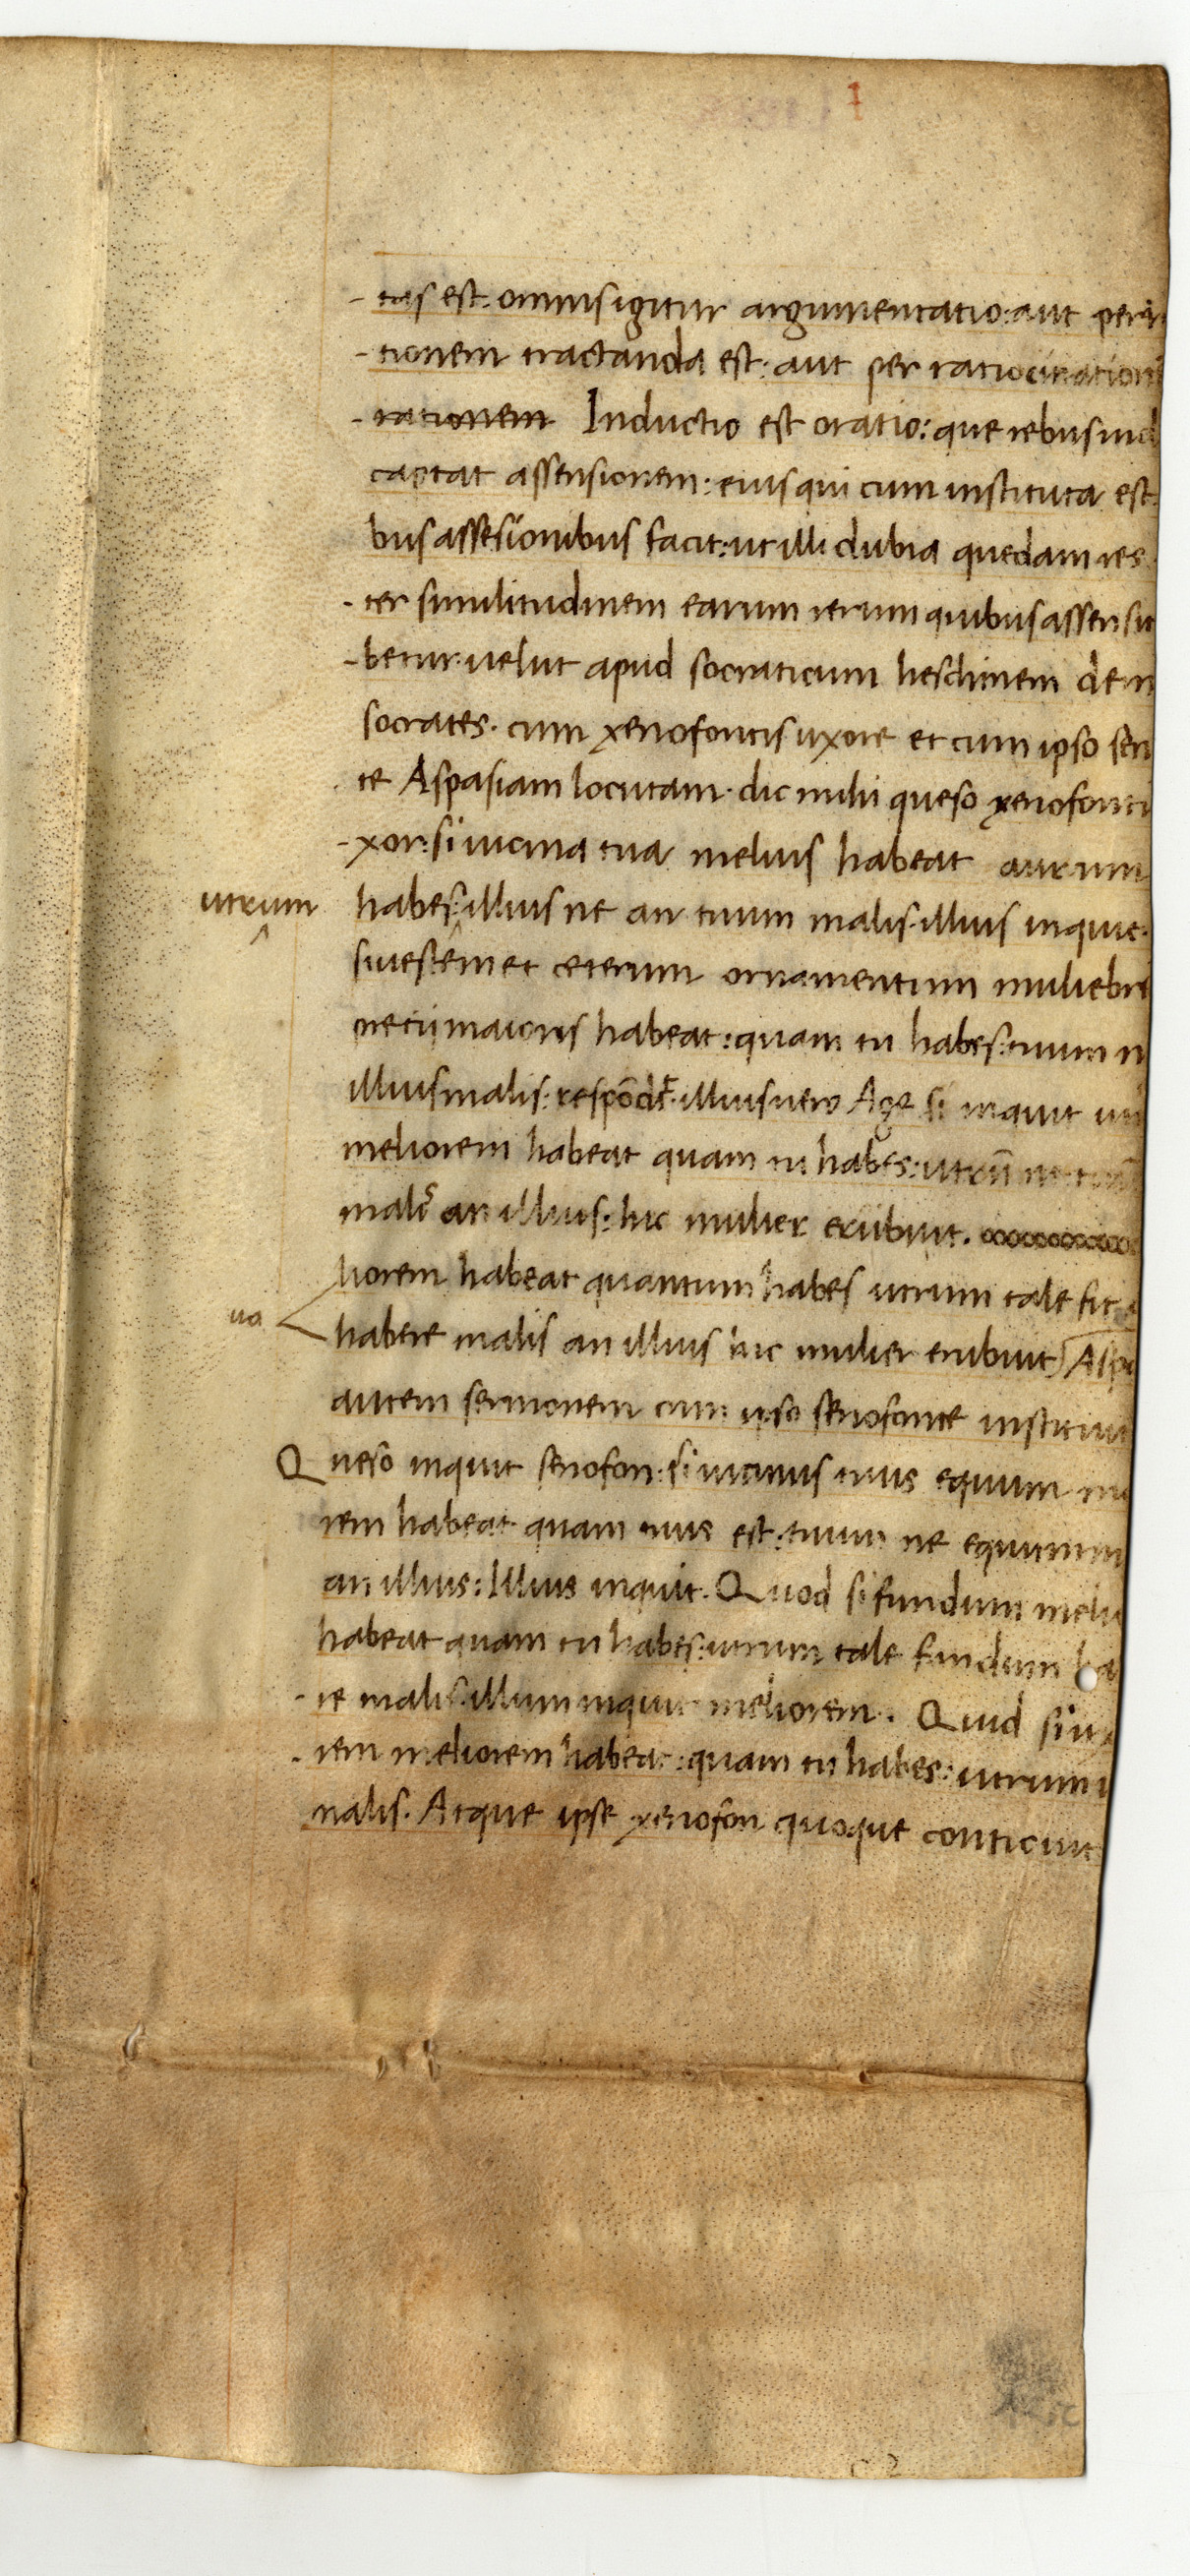 1
-tas est: omnis igitur argumentatio: aut per i
-tionem tractanda est: aut per ratiocination
-rationem Inductio est oratio: que rebus ind
captat assensionem: eius qui cum instituta est:
bus assesionibus facit: ut illi dubia quedam res
-ter similitudinem earum rerum quibus assensit
-betur: uelut apud socraticum heschinem dem
socrates. cum xenofontis uxore et cum ipso sen
te Aspasiam locutam. dic mihi queso xenofonti
-xor: si uicina tua melius habeat aurum
utrum
habes: illius ne an tuum malis. illius inquit.
si uestem et ceterum ornamentum muliebre
netii maioris habeat: quam tu habes: tuum n
illius malis: respōdt. illius uero Age si inquit ui
meliorem habeat quam tu habes: utrū ne tuū
malis an illius: hic mulier erubuit.
liorem habeat quantum habes utrum tale sit
ua
habere malis an illius hic mulier erubuit Aspa
autem sermonem cum ipso senofonte instituit
Queso inquit senofon: si uicinus tuus equum m
rem habeat quam tuus est: tuum ne equum m
an illius: Illius inquit. Quod si fundum meli
habeat quam tu habes: utrum tale fundum ha
-re malis. illum inquit meliorem. Quid si u
-rem meliorem habeat: quam tu habes: utrum i
malis. Atque ipse xenofon quoque conticuit